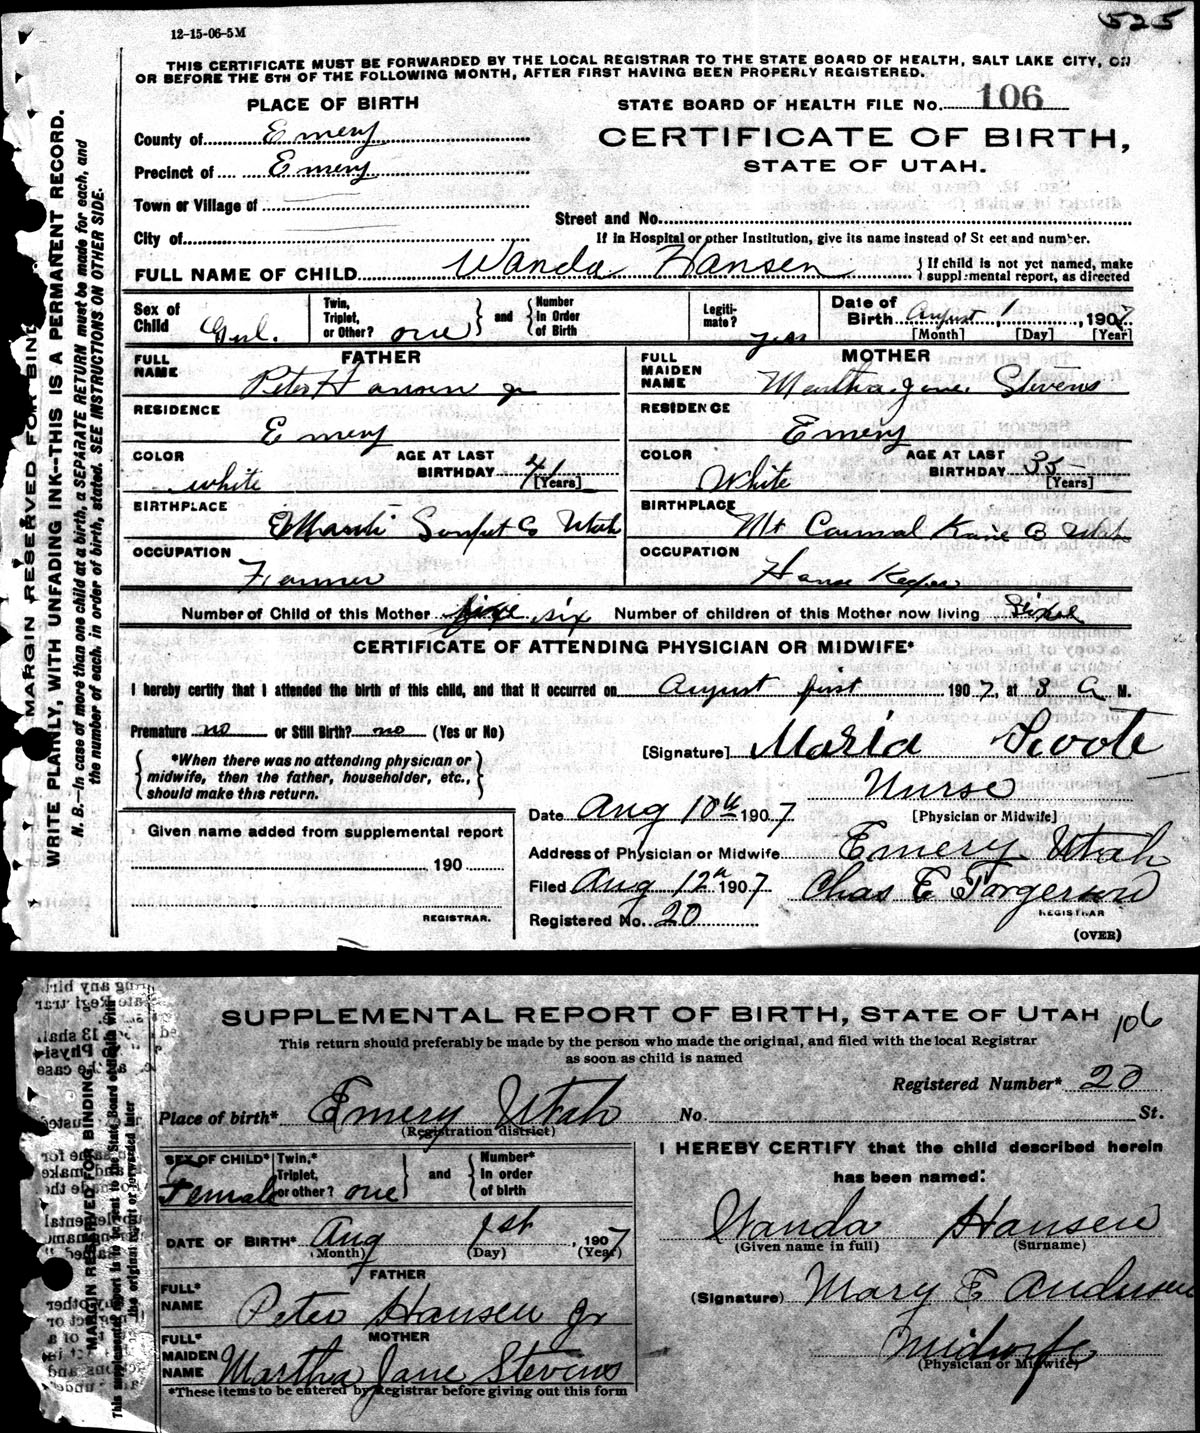 12-15-06-5M
525
THIS CERTIFICATE MUST BE FORWARDED BY THE LOCAL REGISTRAR TO THE STATE BOARD OF HEALTH, SALT LAKE CITY, ON
OR BEFORE THE 5TH OF THE FOLLOWING MONTH, AFTER FIRST HAVING BEEN PROPERLY REGISTERED.
PLACE OF BIRTH
STATE BOARD OF HEALTH FILE No. 106
County of Emery
CERTIFICATE OF BIRTH,
Precinct of Emery
STATE OF UTAH.
Town or Village of
Street and No.
City of
If in Hospital or other Institution, give its name instead of St eet and number.
FULL NAME OF CHILD Wanda Hansen { If child is not yet named, make
suppl mental report, as directed
Sex of Child Girl. Twin, Triplet, or Other? one } and { Number in Order of Birth Legiti-mate? yes Date of Birth August, 1, 1907
[Month] [Day] [Year]
FATHER
MOTHER
FULL NAME Peter Hansen Jr
FULL MAIDEN NAME Martha Jane Stevens
RESIDENCE Emery
RESIDENCE Emery
COLOR white AGE AT LAST BIRTHDAY 41 [Years]
COLOR White AGE AT LAST BIRTHDAY 35 [Years]
BIRTHPLACE Manti Sanpet Co Utah
BIRTHPLACE Mt Carmal Kane Co Utah
OCCUPATION Farmer
OCCUPATION House Keeper
Number of Child of this Mother six Number of children of this Mother now living
CERTIFICATE OF ATTENDING PHYSICIAN OR MIDWIFE*
I hereby certify that I attended the birth of this child, and that it occurred on August first 1907, at 3 A M.
Premature no or Still Birth? no (Yes or No)
[Signature] Maria
{ *When there was no attending physician or
midwife, then the father, householder, etc.,
should make this return. }
Nurse
[Physician or Midwife]
Date Aug 10th 1907
Given name added from supplemental report
190
REGISTRAR.
Address of Physician or Midwife Emery Utah
Filed Aug 12th 1907 Chas E Torgerson
REGISTRAR
Registered No. 20
(OVER)
MARGIN RESERVED FOR BIND
WRITE PLAINLY, WITH UNFADING INK--THIS IS A PERMANENT RECORD.
N. B.--In case of more than one child at a birth, a SEPARATE RETURN must be made for each, and
the number of each, in order of birth, stated. SEE INSTRUCTIONS ON OTHER SIDE.
SUPPLEMENTAL REPORT OF BIRTH, STATE OF UTAH 106
This return should preferably be made by the person who made the original, and filed with the local Registrar
as soon as child is named
Registered Number* 20
Place of birth* Emery Utah No. St.
(Registration district)
SEX OF CHILD* Female Twin,* Triplet, or other? one } and { Number* in order of birth
I HEREBY CERTIFY that the child described herein
has been named:
DATE OF BIRTH* Aug 1st, 1907
(Month) (Day) (Year)
Wanda Hansen
(Given name in full) (Surname)
FATHER
FULL* NAME Peter Hansen Jr
(Signature) Mary E Andersen
MOTHER
FULL* MAIDEN NAME Martha Jane Stevens
Midwife
(Physician or Midwife)
*These items to be entered by Registrar before giving out this form
MARGIN RESERVED FOR BINDING
This supplemental report is to be sent to the State Board of Health with
the original report or forwarded later